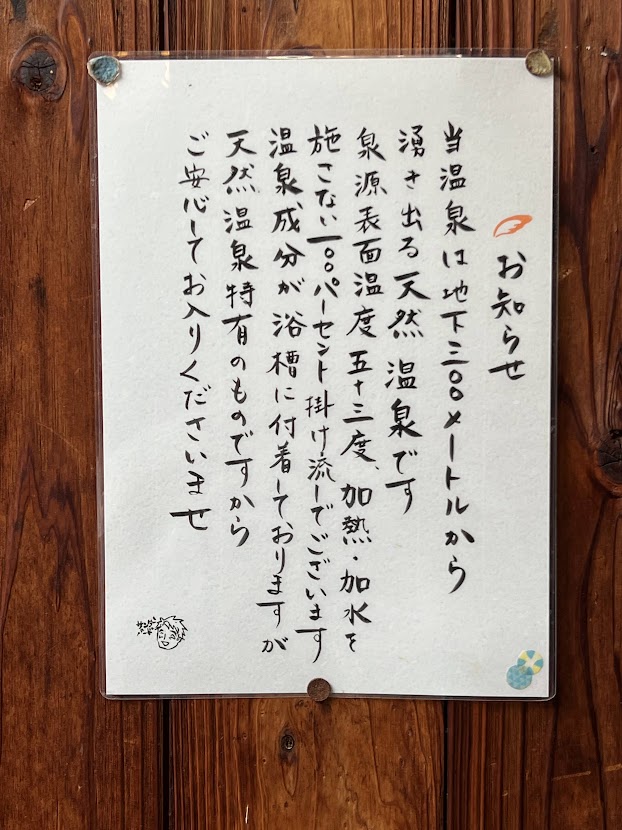 お知らせ
当温泉は地下三〇〇メートルから
湧き出る天然温泉です
泉源表面温度五十三度、加熱・加水を
施こない一〇〇パーセント掛け流しでございます
温泉成分が浴槽に付着しておりますが
天然温泉特有のものですから
ご安心してお入りくださいませ